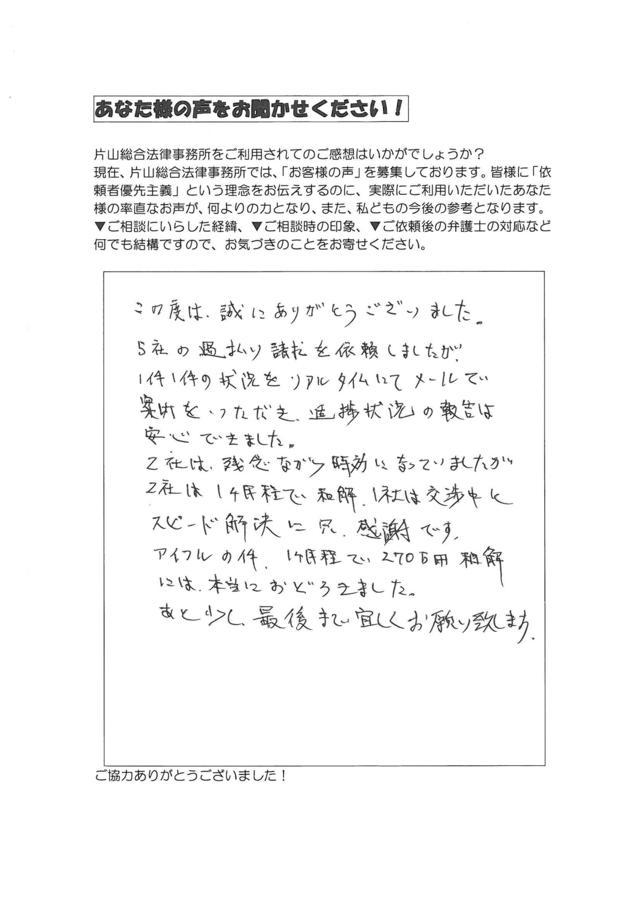 あなた様の声をお聞かせください！
片山総合法律事務所をご利用されてのご感想はいかがでしょうか？
現在、片山総合法律事務所では、「お客様の声」を募集しております。皆様に「依
頼者優先主義」という理念をお伝えするのに、実際にご利用いただいたあなた
様の率直なお声が、何よりの力となり、また、私どもの今後の参考となります。
▼ご相談にいらした経緯、▼ご相談時の印象、▼ご依頼後の弁護士の対応など
何でも結構ですので、お気づきのことをお寄せください。
この度は、誠にありがとうございました。
5社の過払い請求を依頼しましたが、
1件1件の状況をリアルタイムにてメールで
をいただき、進捗状況の報告は
安心できました。
2社は、残念ながら時効になっていましたが
2社は1ヶ月程で和解、1社は交渉中と
スピード解決に 感謝です。
アイフルの件、1ヶ月程で270万円和解
には、本当におどろきました。
あと少し、最後まで宜しくお願い致します。
ご協力ありがとうございました！